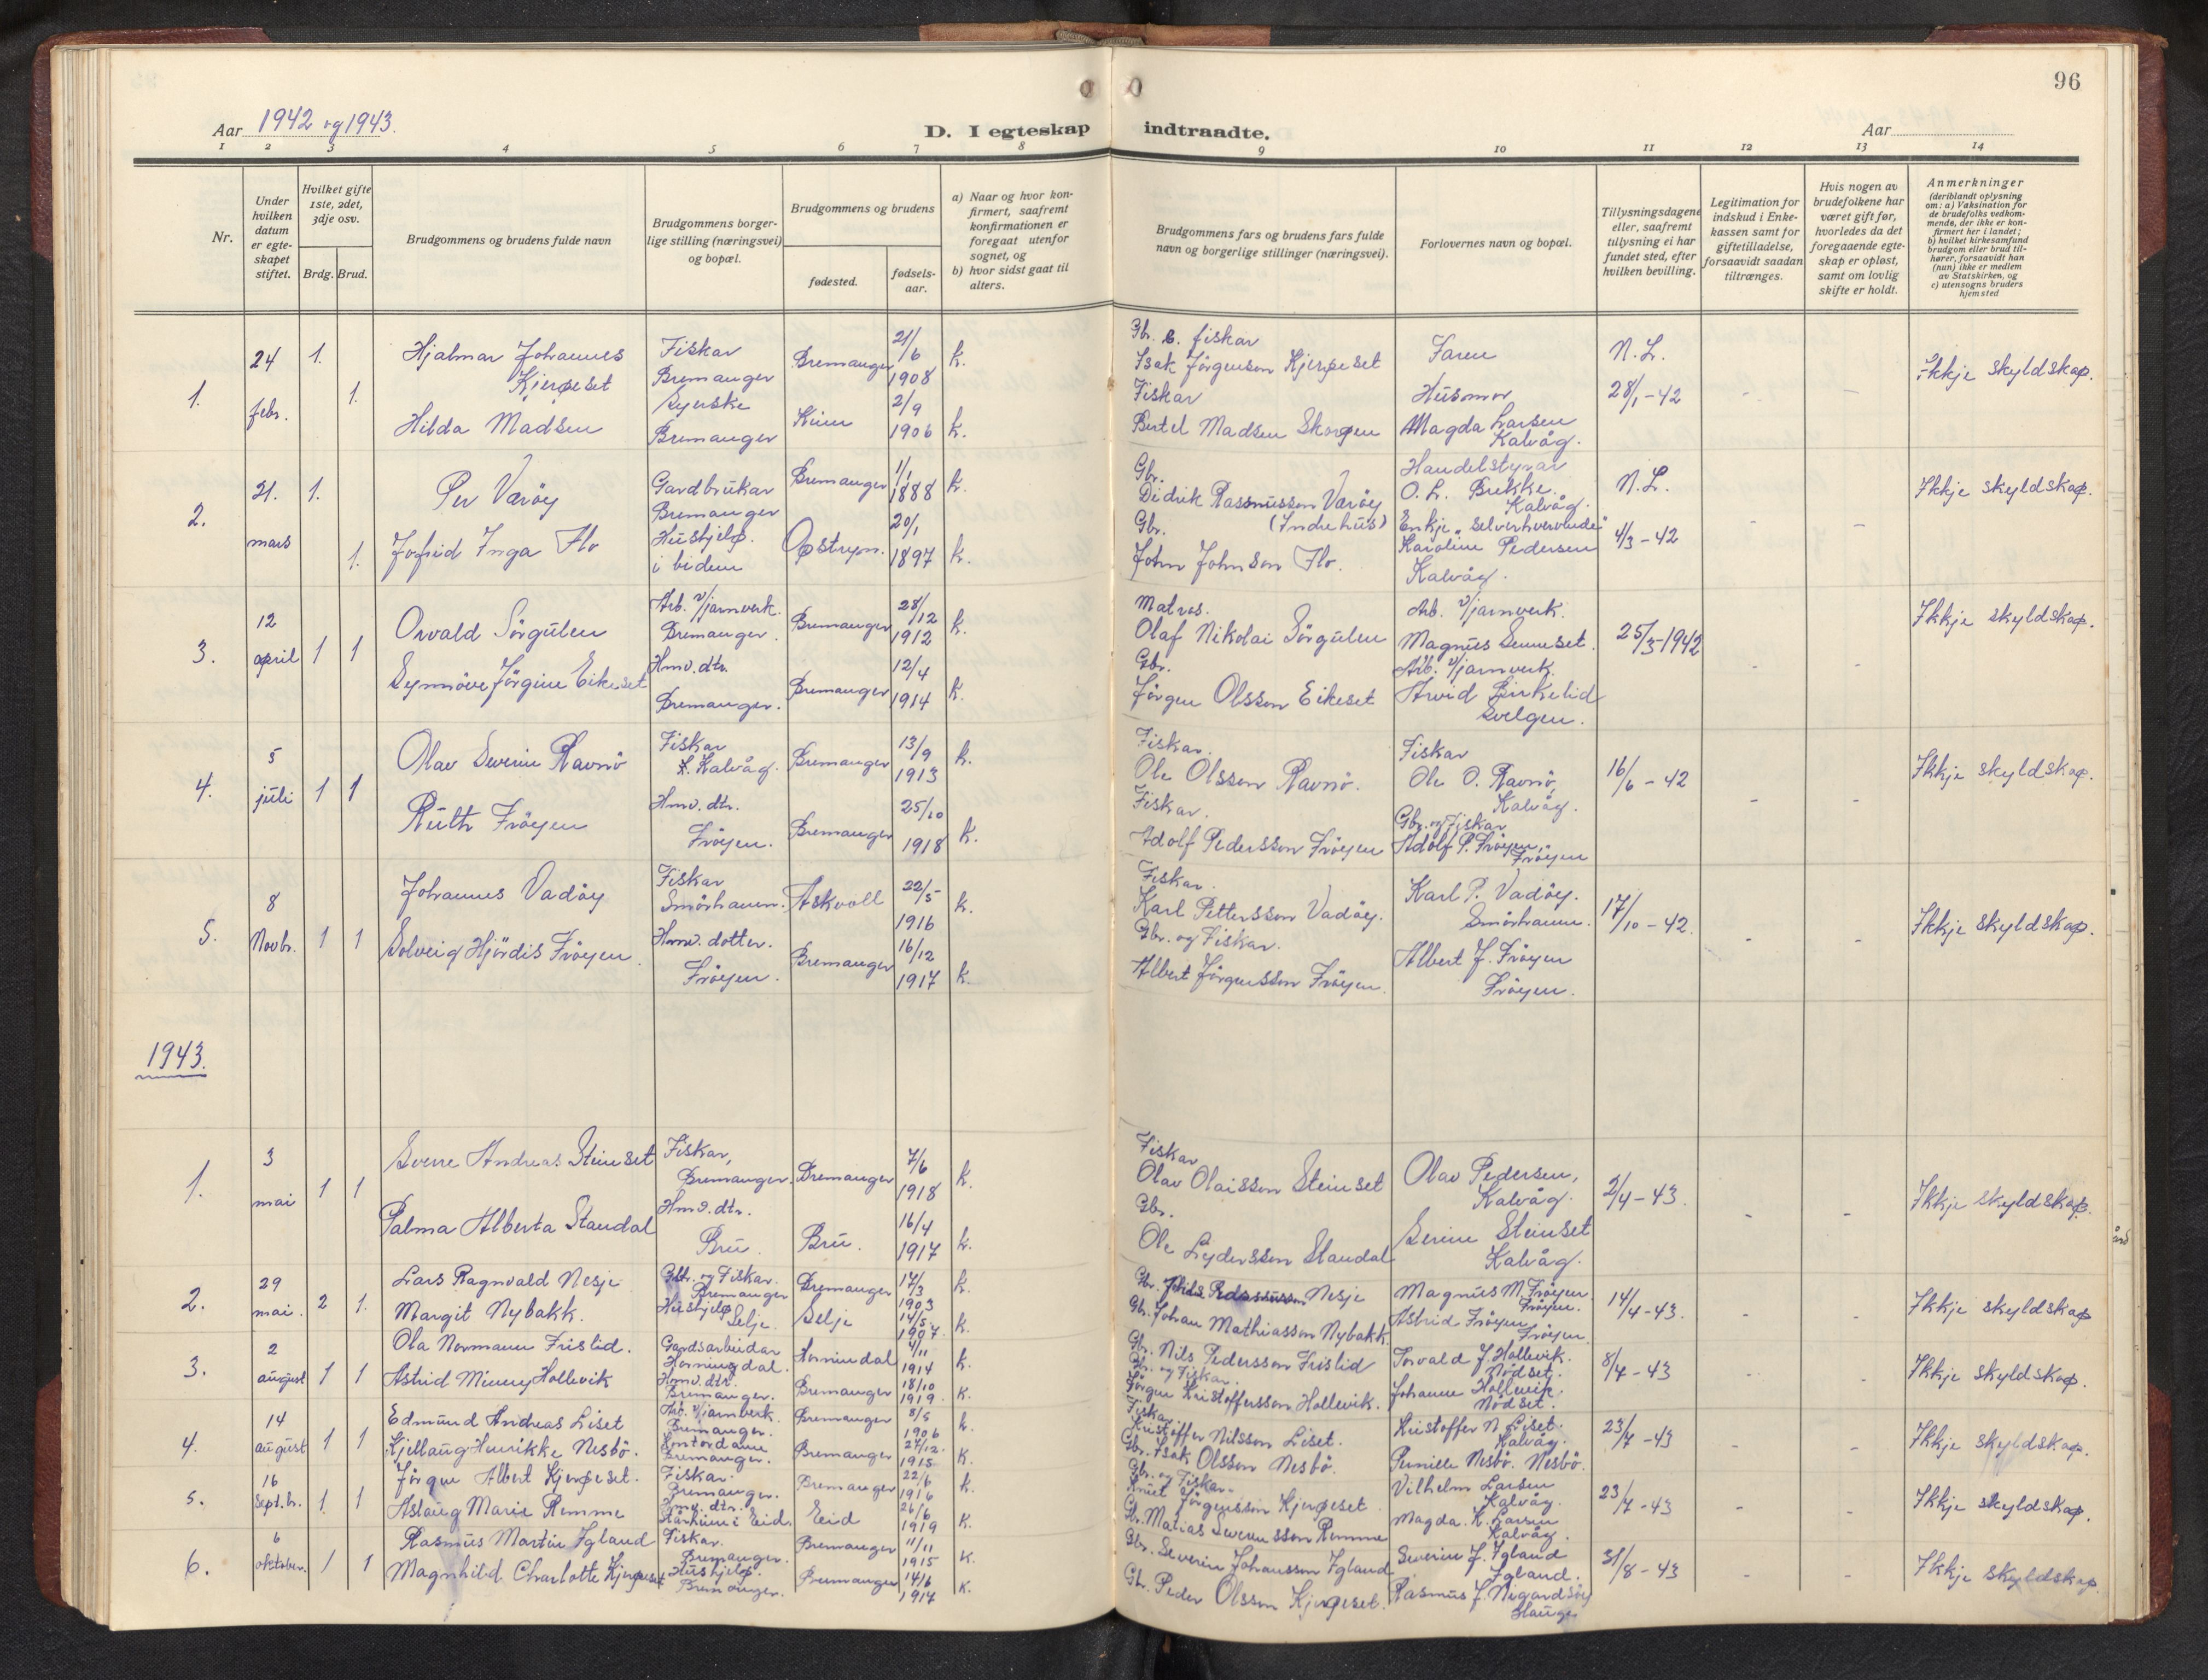 96
Aar 1942 og 1943.
D. I egteskap indtraadte.
Aar
1 2 3 4 5 6 7 8 9 10 11 12 13 14
Nr.
Under hvilken datum er egteskapet stiftet.
Hvilket gifte 1ste, 2det, 3dje osv.
Brdg. Brud.
Brudgommens og brudens fulde navn
Brudgommens borgerlige stilling (næringsvei) og bopæl.
Brudgommens og brudens
fødested.
fødselsaar.
a) Naar og hvor konfirmert, saafremt konfirmationen er foregaat utenfor sognet, og
b) hvor sidst gaat til alters.
Brudgommens fars og brudens fars fulde navn og borgerlige stillinger (næringsvei).
Forlovernes navn og bopæl.
Tillysningsdagene eller, saafremt tillysning ei har fundet sted, efter hvilken bevilling.
Legitimation for indskud i Enkekassen samt for giftetilladelse, forsaavidt saadan tiltrænges.
Hvis nogen av brudefolkene har været gift før, hvorledes da det foregaaende egteskap er opløst, samt om lovlig skifte er holdt.
Anmerkninger (deriblandt oplysning om: a) Vaksination for de brudefolks vedkommende, der ikke er konfirmert her i landet; b) hvilket kirkesamfund brudgom eller brud tilhører, forsaavidt han (hun) ikke er medlem av Statskirken, og c) utensogns bruders hjemsted
1. 24 febr. 1. 1.
Hjalmar Johannes Kjerpeset
Fiskar Bremanger
Bremanger 21/6 1908 k.
Gbr. & fiskar
Isak Jörgenson Kjerpeset
Faren
N. L. 28/1 - 42
Ikkje skyldskap.
Hilda Madsen
Syerske Bremanger
Kinn 2/9 1906 k.
Fiskar
Bertel Madsen Skorpen
Husmor
Magda Larsen
Kalvåg.
2. 21. mars 1. 1.
Per Varöy
Gardbrukar Bremanger
Bremanger 1/1 1888 k.
Gbr.
Didrik Rasmusson Varöy
(Indrehus)
Handelstyrar
O. L. Brekke
Kalvåg.
N. L. 4/3 - 42
Ikkje skyldskap.
Jofrid Inga Flo
Hushjelp. i bidem
Opstryn. 20/1 1897 k.
Gbr.
John Johnson Flo.
Enkje "selverhvervende"
Karoline Pedersen
Kalvåg.
3. 12 april 1 1
Osvald Sörgulen
Arb. v/jarnverk. Bremanger.
Bremanger 28/12 1912 k.
Matros.
Olaf Nikolai Sörgulen
Arb. v/jarnverk.
Magnus Senneset.
25/3-1942
Ikkje skyldskap.
Synnöve Jörgine Eikeset
Hmv. dtr. Bremanger.
Bremanger 12/4 1914 k.
Gbr.
Jörgen Olsson Eikeset
Arb. v/jarnverk.
Arvid Birkelid
Svelgen.
4. 5 juli 1 1
Olav Severin Ravnö
Fiskar Kalvåg.
Bremanger 13/9 1913 k.
Fiskar.
Ole Olsson Ravnö.
Fiskar
Ole O. Ravnö,
Kalvåg.
16/6 - 42
Ikkje skyldskap.
Ruth Fröyen
Hmv. dtr. Fröyen.
Bremanger 25/10 1918 k.
Fiskar.
Adolf Pedersson Fröyen
Gbr. og Fiskar
Adolf P. Fröyen,
Fröyen
5. 8 Novbr. 1 1
Johannes Vadöy
Fiskar Smörhamn.
Askvoll 22/5 1916 k.
Fiskar.
Karl Pettersson Vadöy.
Karl P. Vadöy.
Smörhamn.
17/10 - 42.
Ikkje skyldskap.
Solveig Hjördis Fröyen.
Hmv. dotter. Fröyen.
Bremanger 16/12 1917 k.
Gbr. og Fiskar.
Albert Jörgensson Fröyen.
Albert J. Fröyen
Fröyen.
1943.
1. 3 mai 1 1
Sverre Andreas Steinset
Fiskar, Bremanger.
Bremanger 7/6 1918 k.
Fiskar
Olav Olaisson Steinset
Olav Pedersen,
Kalvåg.
2/4 - 43.
Ikkje skyldskap.
Palma Alberta Standal
Hmv. dtr. Bru.
Bru. 16/4 1917 k.
Gbr.
Ole Lydersson Standal
Serine Steinset
Kalvåg.
2. 29 mai. 2 1.
Lars Ragnvald Nesje
Gbr. og Fiskar. Bremanger
Bremanger 17/3 1903 k.
Gbr. Nesje
Magnus M. Fröyen
Fröyen.
14/4 - 43.
Ikkje skyldskap
Margit Nybakk.
Hushjelp Selje.
Selje 14/5 1907. k.
Gbr. Johan Mathiasson Nybakk.
Astrid Fröyen
Fröyen.
3. 2 august 1 1
Ola Normann Frislid.
Gardsarbeidar Hornindal.
Hornindal 4/11 1914 k.
Gbr. Nils Pedersson Frislid
Torvald J. Hollevik.
Nödset.
8/7 - 43
Ikkje skyldskap.
Astrid Minny Hollevik
Hmv. dtr. Bremanger.
Bremanger 18/10 1919. k.
Gbr. og Fiskar.
Jörgen Kristoffersson Hollevik.
Johanne Hollevik.
Nödset.
4. 14 august 1 1
Edmund Andreas Liset
Arb. v/jarnverk. Bremanger.
Bremanger 8/5 1906 k.
Fiskar
Kristoffer Nilsson Liset.
Kristoffer N. Liset.
Kalvåg.
23/7 - 43
Ikkje skyldskap.
Kjellaug Henrikke Nesbö.
Kontordame Bremanger.
Bremanger 27/12. 1915 k.
Gbr. Isak Olsson Nesbö.
Pernille Nesbö. Nesbö.
5. 16 Sept.br. 1 1
Jörgen Albert Kjerpeset.
Fiskar. Bremanger.
Bremanger 22/6 1916 k.
Gbr. og Fiskar.
Knut Jörgensson Kjerpeset
Vilhelm Larsen
Kalvåg.
23/7 - 43
Ikkje skyldskap.
Aslaug Marie Remme
Hmv. dtr. Starheim i Eid.
Eid 26/6 1919 k.
Gbr. Matias Severinsson Remme
Magda. K. Larsen
Kalvåg.
6. 6 oktober. 1 1
Rasmus Martin Igland
Fiskar. Bremanger.
Bremanger 11/11 1915 k.
Gbr. Severin Johansson Igland
Severin J. Igland
Igland.
31/8 - 43
Ikkje skyldskap.
Magnhild Charlotte Kjerpeset
Hushjelp. Bremanger.
Bremanger 14/6 1914 k.
Gbr. Peder Olsson Kjerpeset.
Rasmus J. Nigardsöy
Hauge